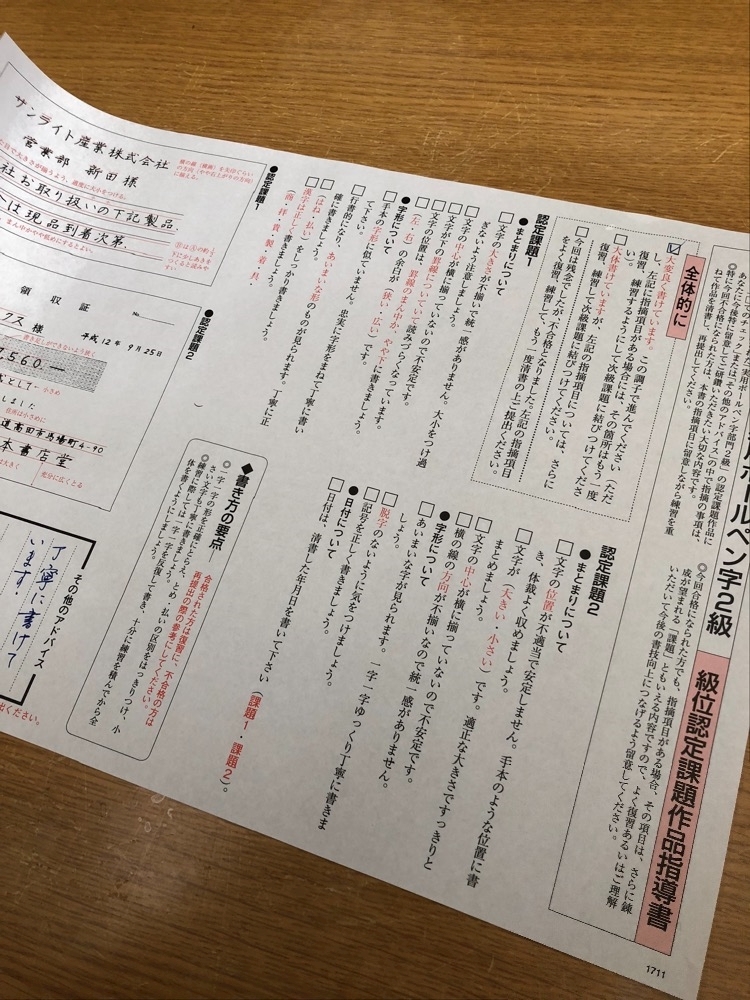 用ボールペン字2級
級位認定課題作品指導書
「実用ボールペン字部門2級」の認定課題作品に
◎特に今回不合格になられた方は、本書の指摘項目に留意しながら練習を重
ねて作品を清書し、再提出してください。
◎今回合格になられた方でも、指摘項目がある場合、その項目は、さらに錬
成が望まれる「課題」ともいえる内容ですので、よく復習あるいはご理解
いただいて今後の書技向上につなげるよう留意してください。
全体的に
大変良く書けています。この調子で進んでください(ただ
し、左記に指摘項目がある場合には、その箇所はもう一度
復習、練習するようにして次級課題に結びつけてください)。
大体書けていますが、左記の指摘項目については、さらに
復習、練習して次級課題に結びつけてください。
今回は残念でしたが、不合格となりました。左記の指摘項目
をよく復習、練習して、もう一度清書の上ご提出ください。
認定課題1
●まとまりについて
□文字の大きさが不揃いで統一感がありません。大小をつけ過
ぎないよう注意しましょう。
□文字の中心が横に揃っていないので不安定です。
□文字の下の罫線についていて読みづらくなっています。
□文字の位置は、罫線のまん中か、やや下に書きましょう。
□(左・右)の余白が(狭い・広い)です。
●字形について
□手本の字形に似ていません。忠実に字形をまねて丁寧に書い
て下さい。
□行書的になり、あいまいな形のものが見られます。丁寧に正
確に書きましょう。
□「はね・払い」をしっかり書きましょう。
□漢字は正しく書きましょう。
(商・拝・貴・製・着・具・
認定課題2
●まとまりについて
□文字の位置が不適当で安定しません。手本のような位置に書
き、体裁よく収めましょう。
□文字が(大きい・小さい)です。適正な大きさですっきりと
まとめましょう。
□文字の中心が横に揃っていないので不安定です。
□横の線の方向が不揃いなので統一感がありません。
●字形について
□あいまいな字が見られます。一字一字ゆっくり丁寧に書きま
しょう。
□脱字のないように気をつけましょう。
□記号を正して書きましょう。
●日付について
□日付は、清書した年月日を書いて下さい(課題1・課題2)。
◆書き方の要点
合格された方は復習に、不合格の方は
再提出の際の参考にしてください。
◎一字一字の形を正確にとらえ、とめ、払いの区別をはっきりつけ、小
さい文字も丁寧に書きましょう。
◎練習に際しては、一字一字を反復して書き、十分に練習を積んでから全
体を書くようにしましょう。
●認定課題1
サンライト産業株式会社
営業部 新田様
横の線(横画)を矢印ぐらい
の方向(やや右上がりの方向)
に揃える。
社お取り扱いの下記製品
は現品到着次第、
●認定課題2
領収証
No.
クス 様
平成12年9月25日
,560―
小さめ
しました
住所は小さめに
道高田市馬場町4-90
本書店堂
充分に広くとる
その他のアドバイス
丁寧に書けて
います!
1711